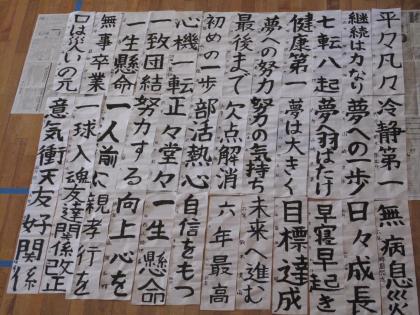 平々凡々
継続は力なり
七転八起
健康第一
夢への努力
最後まで
初めの一歩
心機一転
一致団結
一生懸命
無事卒業
口は災いの元
冷静第一
夢への一歩
夢へ羽ばたけ
夢は大きく
努力の気持ち
欠点解消
部活熱心
正々堂々
努力する
一人前に
一球入魂
意気衝天
無病息災
日々成長
早寝早起き
目標達成
未来へ進む
六年最高
自信をもつ
一生懸命
向上心を
親孝行を
友達関係改正
友好関係